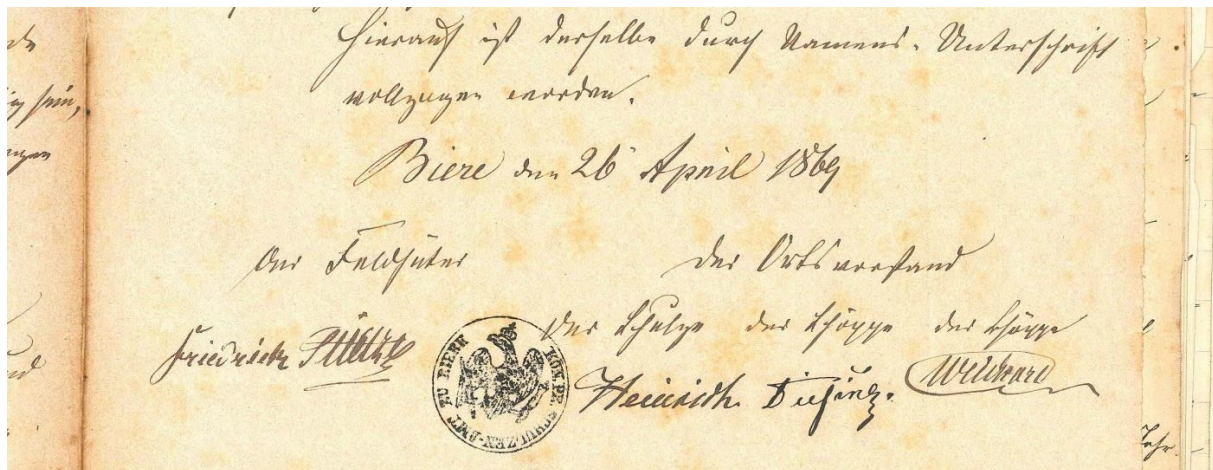 hierauf ist derselbe durch Namens-Unterschrift
vollzogen worden.
Biere den 26 April 1869
Der Feldhüter
Der Ortsvorstand
der Schulze der Schöppe der Schöppe
Friedrich
Heinrich
KÖN. PR. SCHULZEN-AMT ZU BIERE
sein,